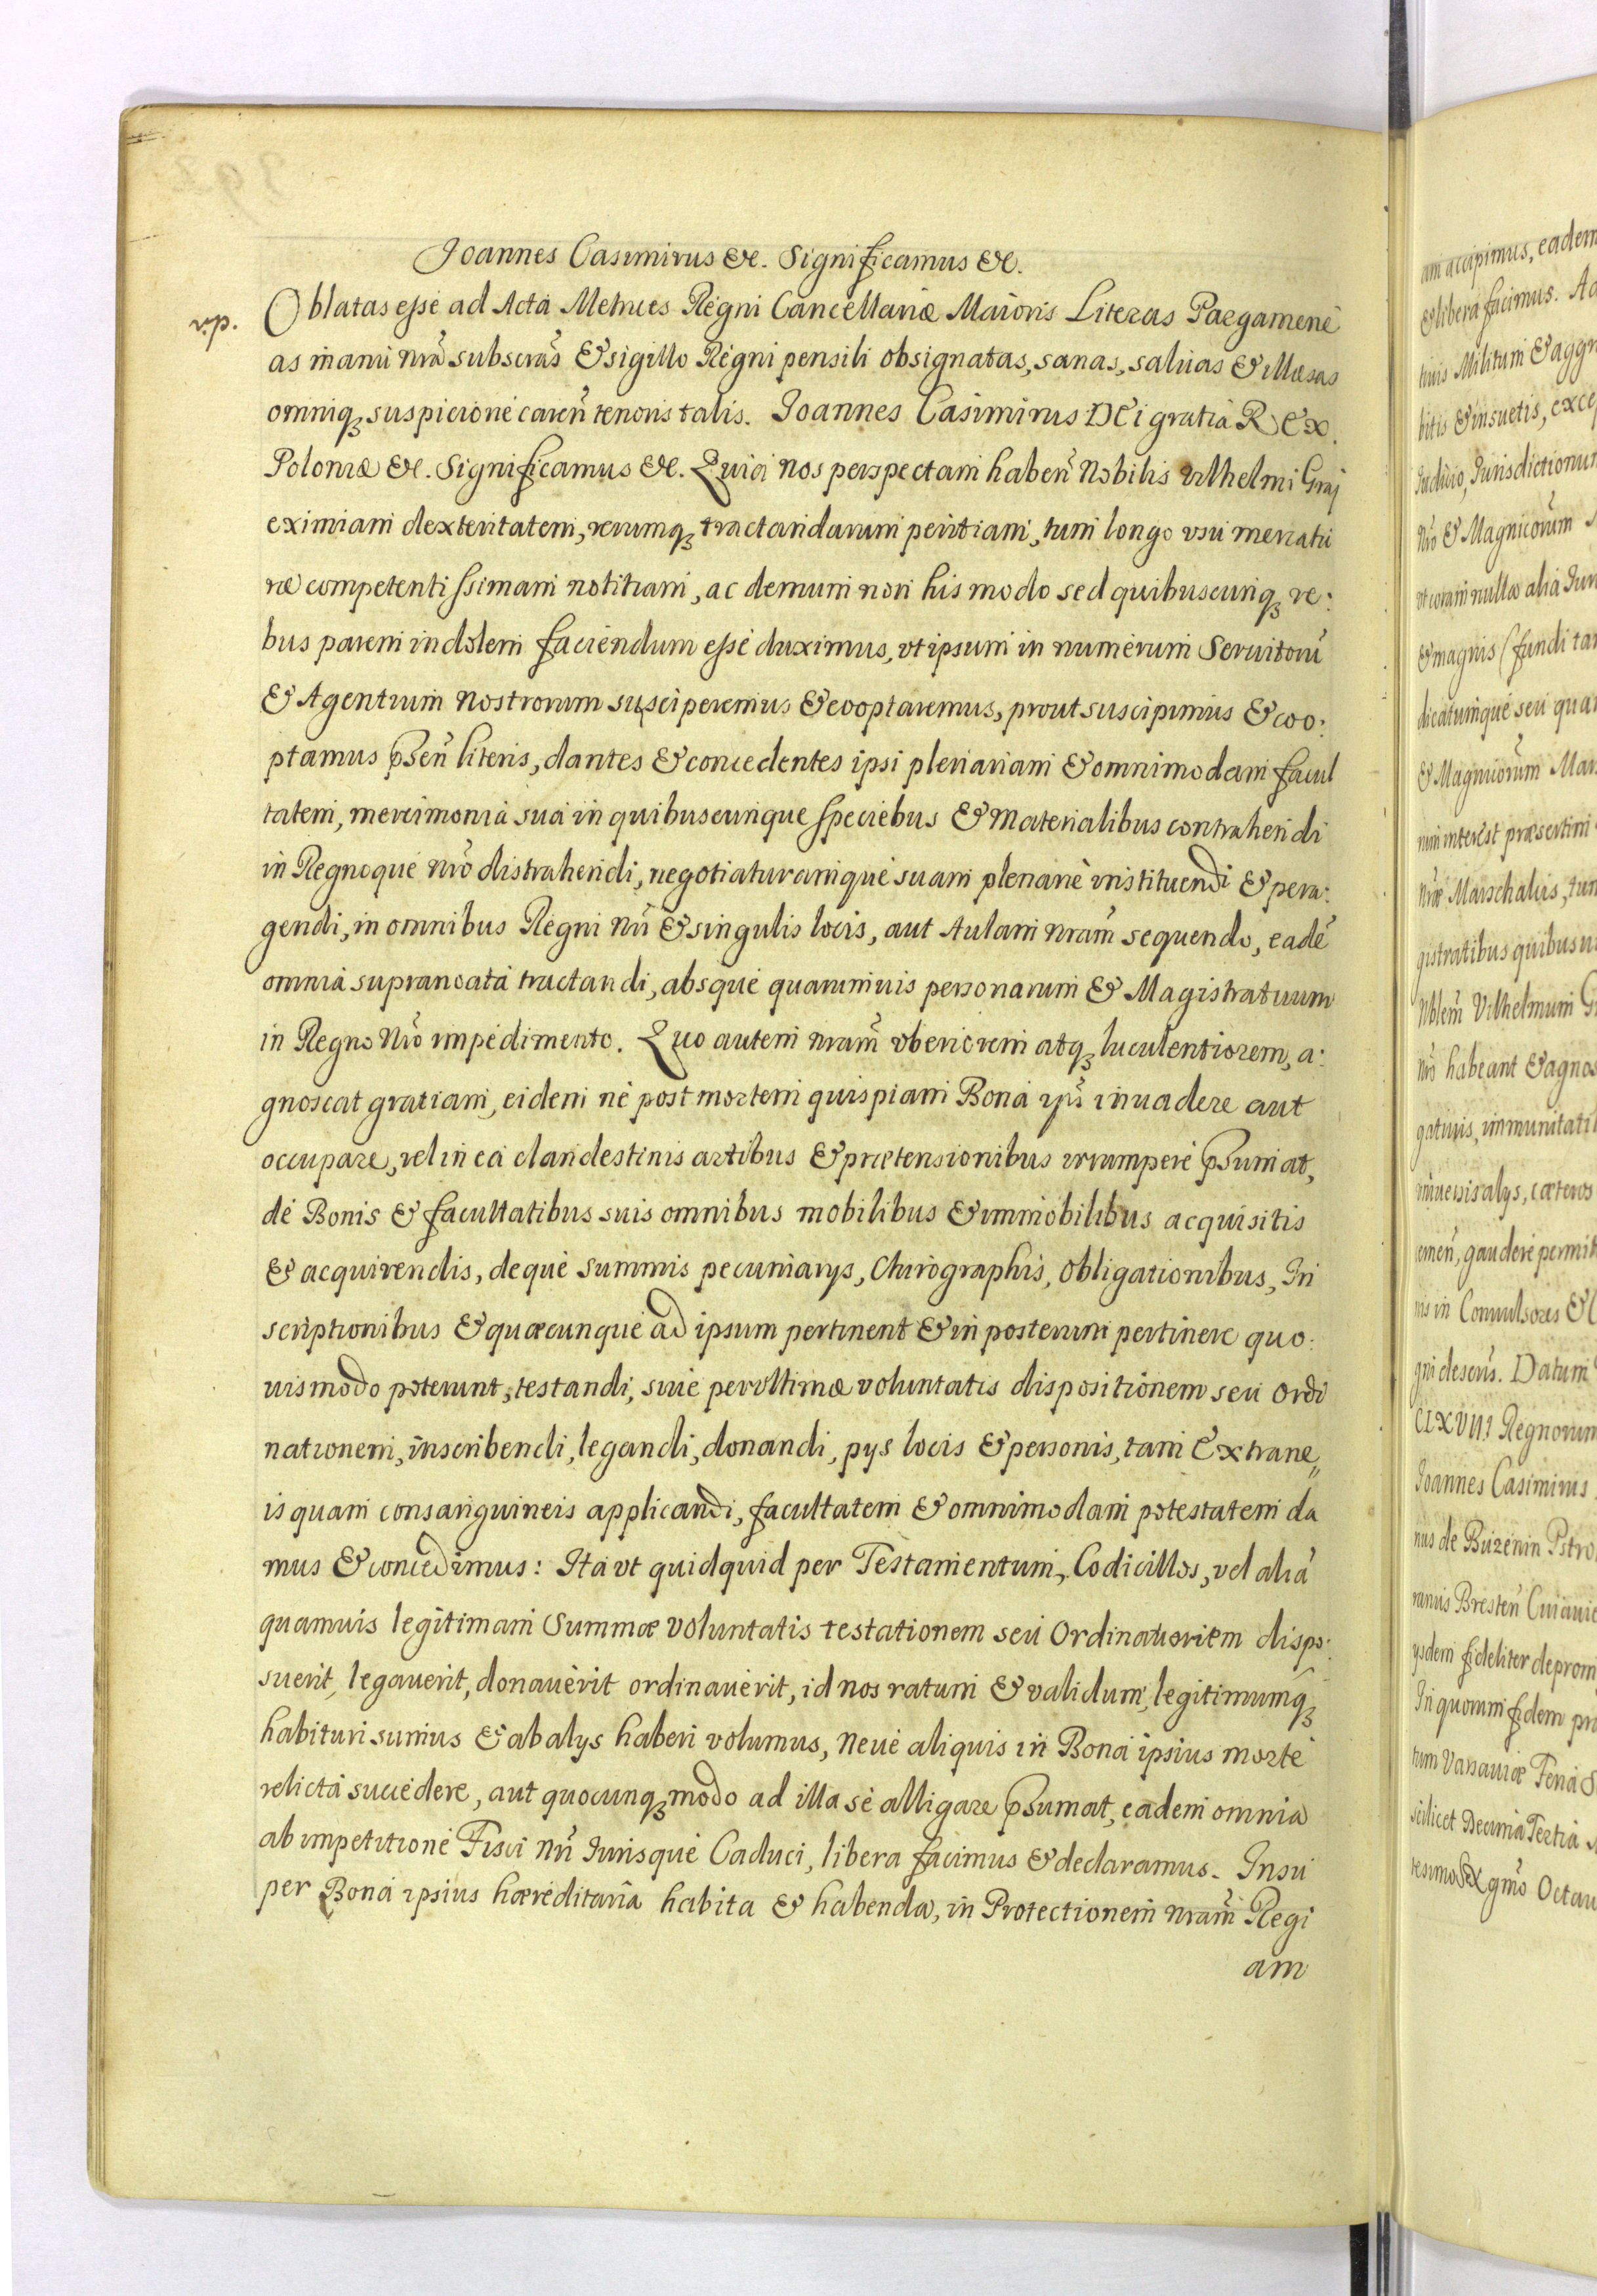 Joannes Casimirus &c. Significamus &c.
v.p.
Oblatas esse ad Acta Metrices Regni Cancellariæ Maioris Literas Pargamene
as manu nrã subscrãs & sigillo Regni pensili obsignatas, sanas, saluas & illæsas
omniq₃ suspicione careñ tenoris talis. Joannes Casimirus DEi gratia REx
Poloniæ &c. Significamus &c. Quia nos perspectam habeñ Nobilis Wilhelmi Graj
eximiam dexteritatem, rerumq₃ tractandarum peritiam, tum longo vsu mercatu
ræ competentissimam notitiam, ac demum non his modo sed quibuscunq₃ re:
bus parem indolem faciendum esse duximus, vt ipsum in numerum Seruitorũ
& Agentium nostrorum susciperemus & cooptaremus, prout suscipimus & coo:
ptamus p̃sen̄ literis, dantes & concedentes ipsi plenariam & omnimodam facul
tatem, mercimonia sua in quibuscunque speciebus & materialibus contrahendi
in Regnoque nrõ distrahendi, negotiaturamque suam plenarie instituendi & pera:
gendi, in omnibus Regni nrĩ & singulis locis, aut Aulam nram̃ sequendo, eadẽ
omnia supranoata tractandi, absque quarumuis personarum & Magistratuum
in Regno Nrõ impedimento. Quo autem nram̃ vberiorem atq₃ luculentiorem, a:
gnoscat gratiam, eidem ne post mortem quispiam Bona ipš inuadere aut
occupare, vel in ea clandestinis artibus & prætensionibus irrumpere p̃sumat,
de Bonis & facultatibus suis omnibus mobilibus & immobilibus acquisitis
& acquirendis, deque summis pecuniarys, Chirographis, Obligationibus, In
scriptionibus & quæcunque ad ipsum pertinent & in posterum pertinere quo:
uismodo poterunt, testandi, siue per vltimæ voluntatis dispositionem seu ordi
nationem, inscribendi, legandi, donandi, pys locis & personis, tam Extrane„
is quam consanguineis applicandi, facultatem & omnimodam potestatem da
mus & concedimus: Ita vt quidquid per Testamentum, Codicillos, vel aliã
quamuis legitimam Summæ voluntatis testationem seu Ordinationem dispo:
suerit, legauerit, donauerit ordinauerit, id nos ratum & validum, legitimumq₃
habituri sumus & ab alys haberi volumus, neue aliquis in Bona ipsius morte
relicta succedere, aut quocunq₃ modo ad illa se alligare p̃sumat, eadem omnia
ab impetitione Fisci nrĩ Jurisque Caduci, libera facimus & declaramus. Insu
per Bona ipsius hæreditaria habita & habenda, in Protectionem nram̃ Regi
am
am accipimus, eadem
& libera facimus.
Militum & aggr
bitis & insuetis, exce
Judicio, Jurisdictionum
Nrõ & Magnicorũm
vt coram nulla alia Jur
& magnis (fundi tan
dicatumque seu quar
& Magnicorũm Mar
interest præsertim
nræ Marschalcis, tum
gistratibus quibusui
Nblem̃ Vilhelmum G
Nrõ habeant & agnos
gatiuis, immunitati
vniuersis alys, cæteros
gaudere permit
Conuulsores &
Datum
CLXVIII Regnorum
Joannes Casimirus
nus de Buzenin Pstro
Bresteñ Cuiauie
ysdem fideliter deprom
In quorum fidem pr
tum Varsauiæ Feria S
scilicet Decima Tertia
Octau